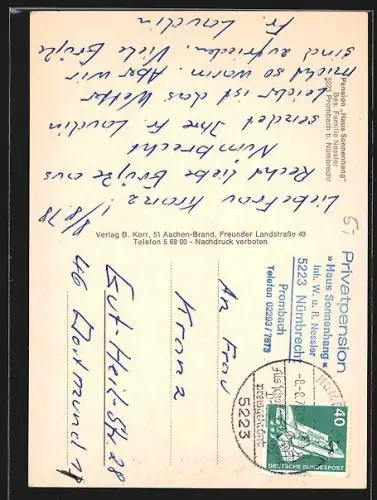 8/8.78
Liebe Frau Kranz!
Recht liebe Grüße aus
Nümbrecht
sendet Ihre Fr. Laudin
Leider ist das Wetter
nicht so warm. Aber wir
sind zufrieden. Viele Grüße
Fr. Laudin
Pension „Haus Sonnenhang"
Bes. Familie Nessler
5223 Prombach b. Nümbrecht
Verlag B. Korr, 51 Aachen-Brand, Freunder Landstraße 49
Telefon 5 69 00 - Nachdruck verboten
5,-
Privatpension
» Haus Sonnenhang «
Inh. W. u. R. Nessler
5223 Nümbrecht
Prombach
Telefon 02293/7673
An Frau
Kranz
Gut-Heil-Str 28
46 Dortmund 1
-8.-8.7
5223
40
DEUTSCHE BUNDESPOST